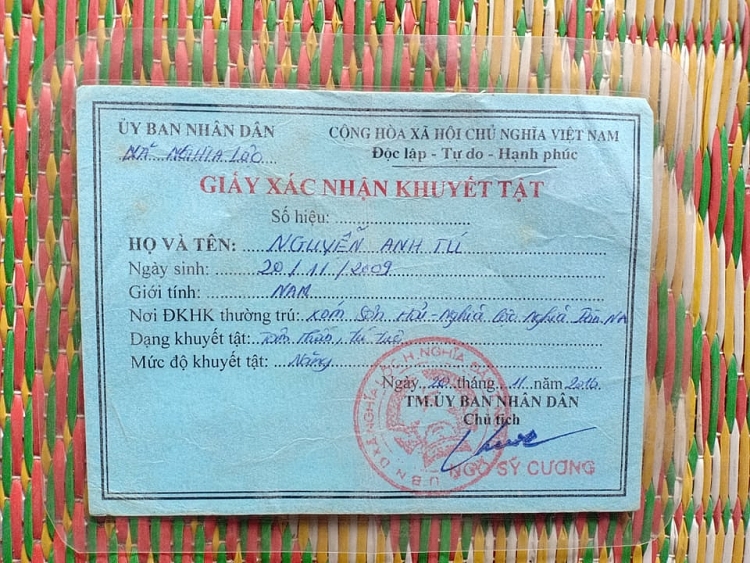 ỦY BAN NHÂN DÂN
XÃ NGHĨA LỘC
CỘNG HÒA XÃ HỘI CHỦ NGHĨA VIỆT NAM
Độc lập - Tự do - Hạnh phúc
GIẤY XÁC NHẬN KHUYẾT TẬT
Số hiệu:
HỌ VÀ TÊN: NGUYỄN ANH TÚ
Ngày sinh: 20/11/2009
Giới tính: NAM
Nơi ĐKHK thường trú: xóm Sơn Hải - Nghĩa Lộc Nghĩa Đàn NA
Dạng khuyết tật: thần, trí tuệ
Mức độ khuyết tật: Nặng
Ngày 20 tháng 11 năm 2016
TM.ỦY BAN NHÂN DÂN
Chủ tịch
NGÔ SỸ CƯƠNG
U.B.N.D XÃ NGHĨA LỘC H.NGHĨA ĐÀN